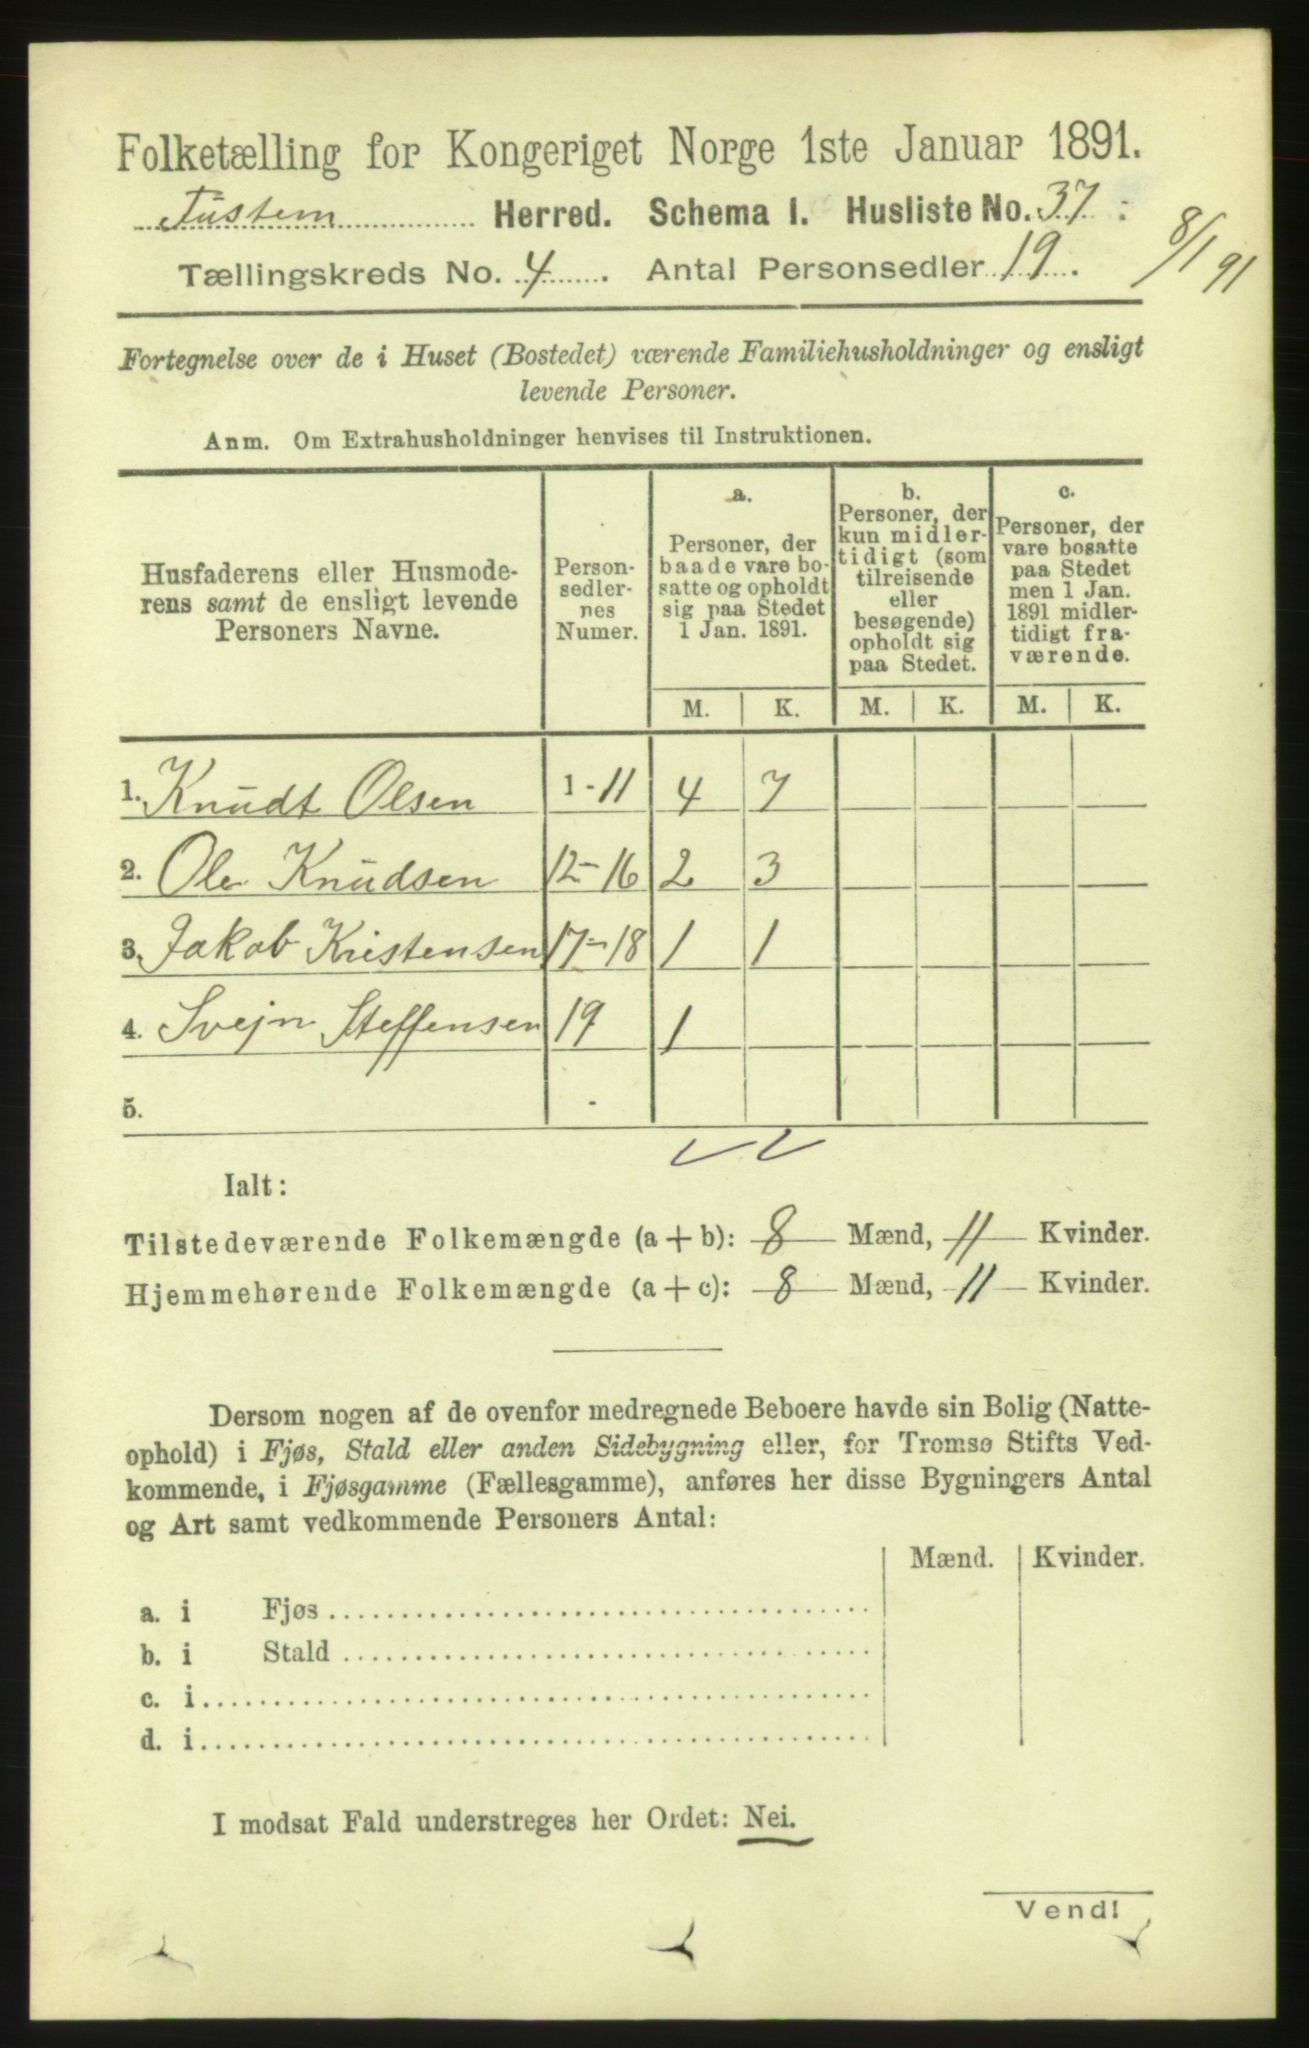 Folketælling for Kongeriget Norge 1ste Januar 1891.
Tustern Herred. Schema 1. Husliste No. 37 :
8/1 91
Tællingskreds No. 4. Antal Personsedler 19.
Fortegnelse over de i Huset (Bostedet) værende Familiehusholdninger og ensligt
levende Personer.
Anm. Om Extrahusholdninger henvises til Instruktionen.
Husfaderens eller Husmode-
rens samt de ensligt levende
Personers Navne.
Person-
sedler-
nes
Numer.
a.
Personer, der
baade vare bo-
satte og opholdt
sig paa Stedet
1 Jan. 1891.
b.
Personer, der
kun midler-
tidigt (som
tilreisende
eller
besøgende)
opholdt sig
paa Stedet.
c.
Personer, der
vare bosatte
paa Stedet
men 1 Jan.
1891 midler-
tidigt fra-
værende.
M. K. M. K. M. K.
1. Knudt Olsen 1-11 4 7
2. Ole Knudsen 12-16 2 3
3. Jakob Kristensen 17-18 1 1
4. Svejn Steffensen 19 1
5. -
Ialt:
Tilstedeværende Folkemængde (a + b): 8 Mænd, 11 Kvinder.
Hjemmehørende Folkemængde (a + c): 8 Mænd, 11 Kvinder.
Dersom nogen af de ovenfor medregnede Beboere havde sin Bolig (Natte-
ophold) i Fjøs, Stald eller anden Sidebygning eller, for Tromsø Stifts Ved-
kommende, i Fjøsgamme (Fællesgamme), anføres her disse Bygningers Antal
og Art samt vedkommende Personers Antal:
Mænd. Kvinder.
a. i Fjøs
b. i Stald
c. i
d. i
I modsat Fald understreges her Ordet: Nei.
Vend!